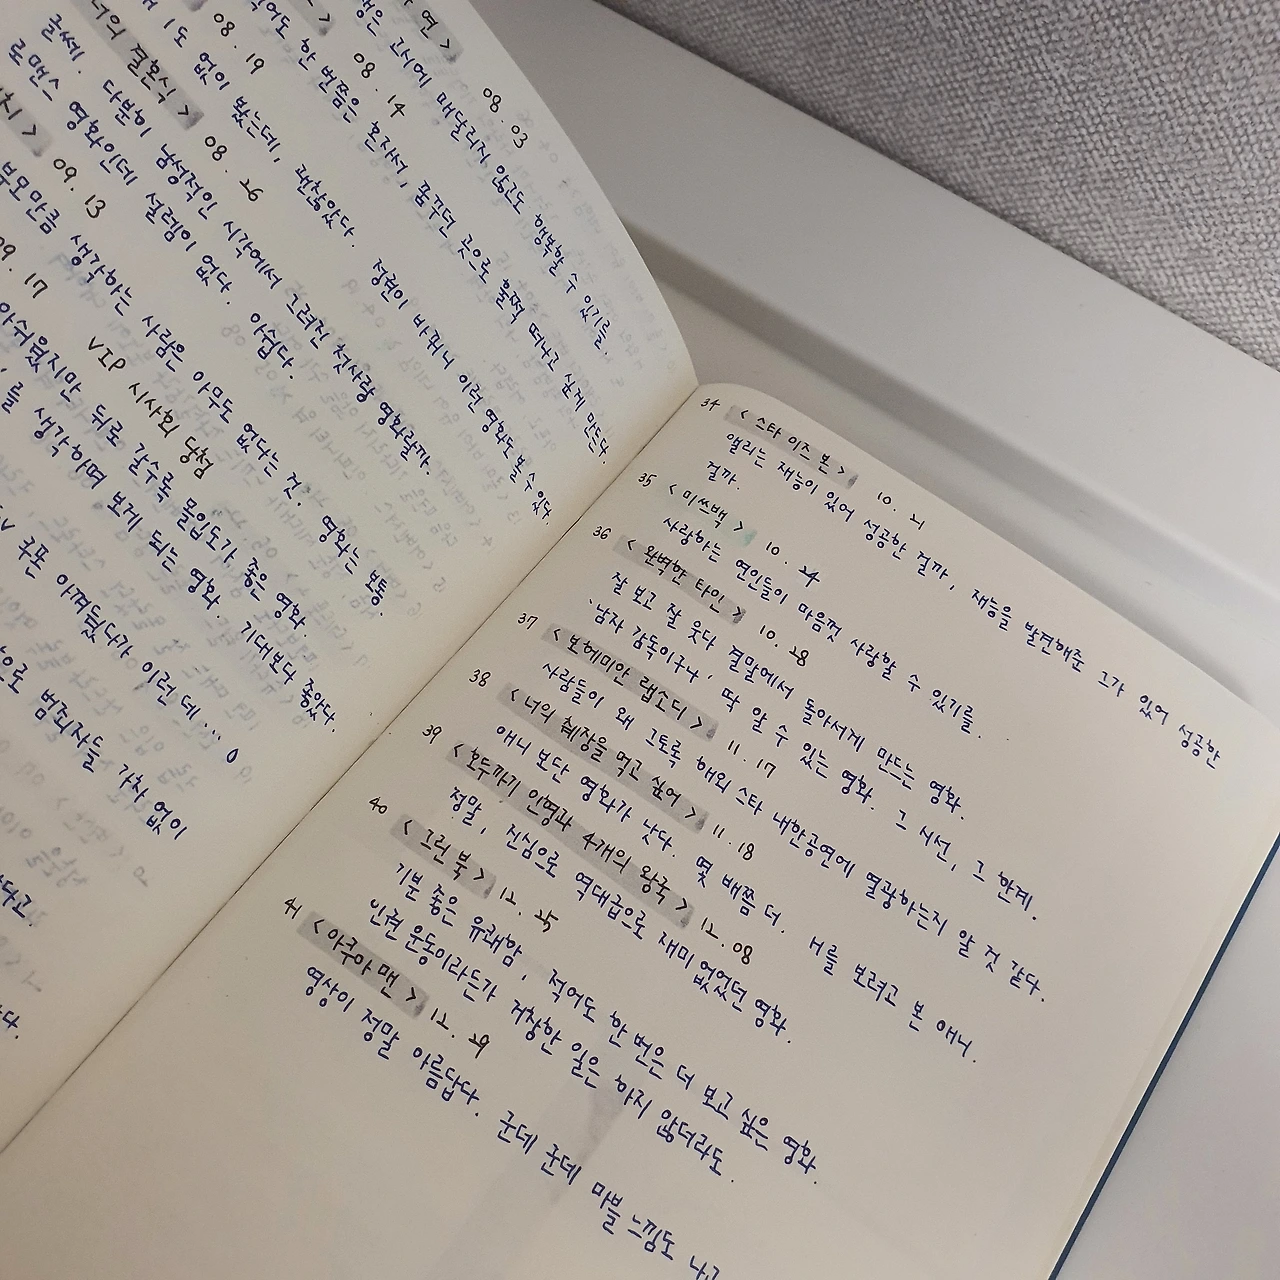 연 >
08. 03
고시에 매달리지 않고도 행복할 수 있기를.
>
08. 14
한 번쯤은 혼자서, 꿈꾸던 곳으로 훌쩍 떠나고 싶게 만든다.
08. 19
도 없이 봤는데, 괜찮았다. 정권이 바뀌니 이런 영화도 볼 수 있다.
너의 결혼식 >
08. 26
글쎄. 다분히 남성적인 시각에서 그려진 첫사랑 영화랄까.
로맨스 영화인데 설렘이 없다. 아쉽다.
치 >
09. 13
부모만큼 생각하는 사람은 아무도 없다는 것. 영화는 보통.
09. 17
VIP 시사회 당첨
아쉬웠지만 뒤로 갈수록 몰입도가 좋은 영화.
를 생각하며 보게 되는 영화. 기대보다 좋았다.
쿠폰 아껴뒀다가 이런 데...
으로 범죄자들 가차 없이
34 < 스타 이즈 본 > 10. 21
앨리는 재능이 있어 성공한 걸까, 재능을 발견해준 그가 있어 성공한
걸까.
35 < 미쓰백 > 10. 24
사랑하는 연인들이 마음껏 사랑할 수 있기를.
36 < 완벽한 타인 > 10. 28
잘 보고 잘 웃다 결말에서 돌아서게 만드는 영화.
'남자 감독이구나' 딱 알 수 있는 영화. 그 시선, 그 한계.
37 < 보헤미안 랩소디 > 11. 17
사람들이 왜 그토록 해외 스타 내한공연에 열광하는지 알 것 같다.
38 < 너의 췌장을 먹고 싶어 > 11. 18
애니 보단 영화가 낫다. 몇 배쯤 더. H를 보려고 본 애니.
39 < 호두까기 인형과 4개의 왕국 > 12. 08
정말, 진심으로 역대급으로 재미없었던 영화.
40 < 그린 북 > 12. 25
기분 좋은 유쾌함, 적어도 한 번은 더 보고 싶은 영화.
인권 운동이라든가 거창한 일은 하지 않더라도.
41 < 아쿠아맨 > 12. 29
영상이 정말 아름답다. 군데 군데 마블 느낌도 나고